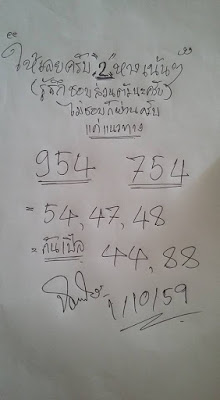 ให้เลยครับ 2 หางเน้นๆ
(รู้สึกชอบส่วนตัวนะครับ)
ไม่ชอบก็ผ่านครับ
แค่แนวทาง
954 754
= 54, 47, 48
= กันเปิ้ล 44, 88
1/10/59